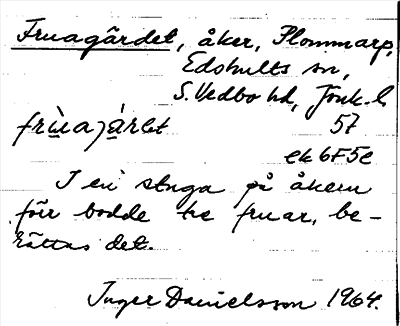 Fruagärdet, åker, Plommarp,
Edshults sn,
S. Vedbo hd, Jönk. l
57
ek 6F5e
I en stuga på åkern
förr bodde tre fruar, be-
rättas det.
Inger Danielsson 1964.